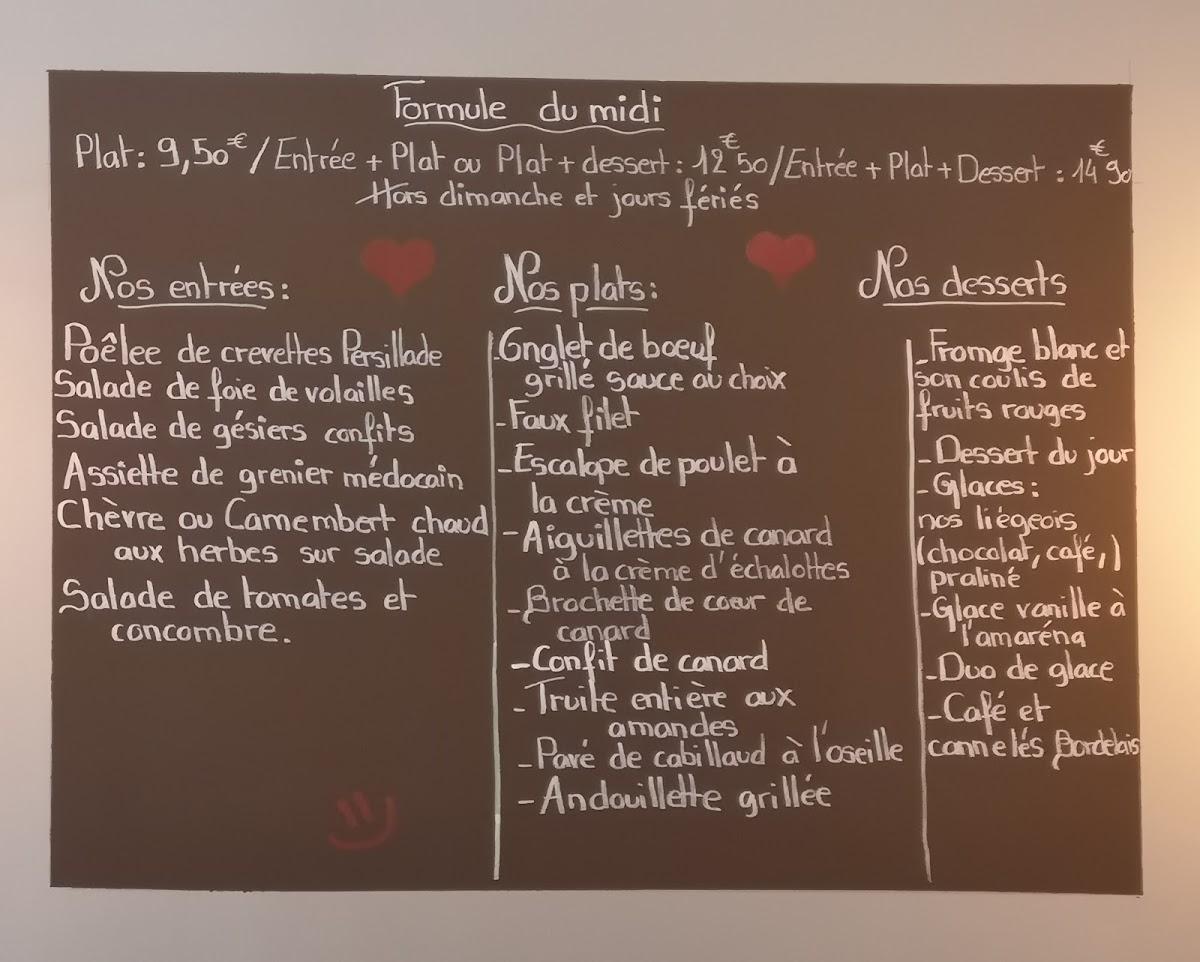 Formule du midi
Plat: 9,50€/Entrée + Plat ou Plat + dessert : 12€50/Entrée + Plat + Dessert : 14€90
Hors dimanche et jours fériés
Nos entrées:
Poêlee de crevettes Persillade
Salade de foie de volailles
Salade de gésiers confits
Assiette de grenier médocain
Chèvre ou Camembert chaud
aux herbes sur salade
Salade de tomates et
concombre.
Nos plats:
- Onglet de bœuf
grillé sauce au choix
- Faux filet
- Escalope de poulet à
la crème
- Aiguillettes de canard
à la crème d'échalottes
- Brochette de cœur de
canard
- Confit de canard
- Truite entière aux
amandes
- Pavé de cabillaud à l'oseille
- Andouillette grillée
Nos desserts
- Fromge blanc et
son coulis de
fruits rouges
- Dessert du jour
- Glaces:
nos liégeois
(chocolat, café,)
praliné
- Glace vanille à
l'amaréna
- Duo de glace
- Café et
cannelés Bordelais